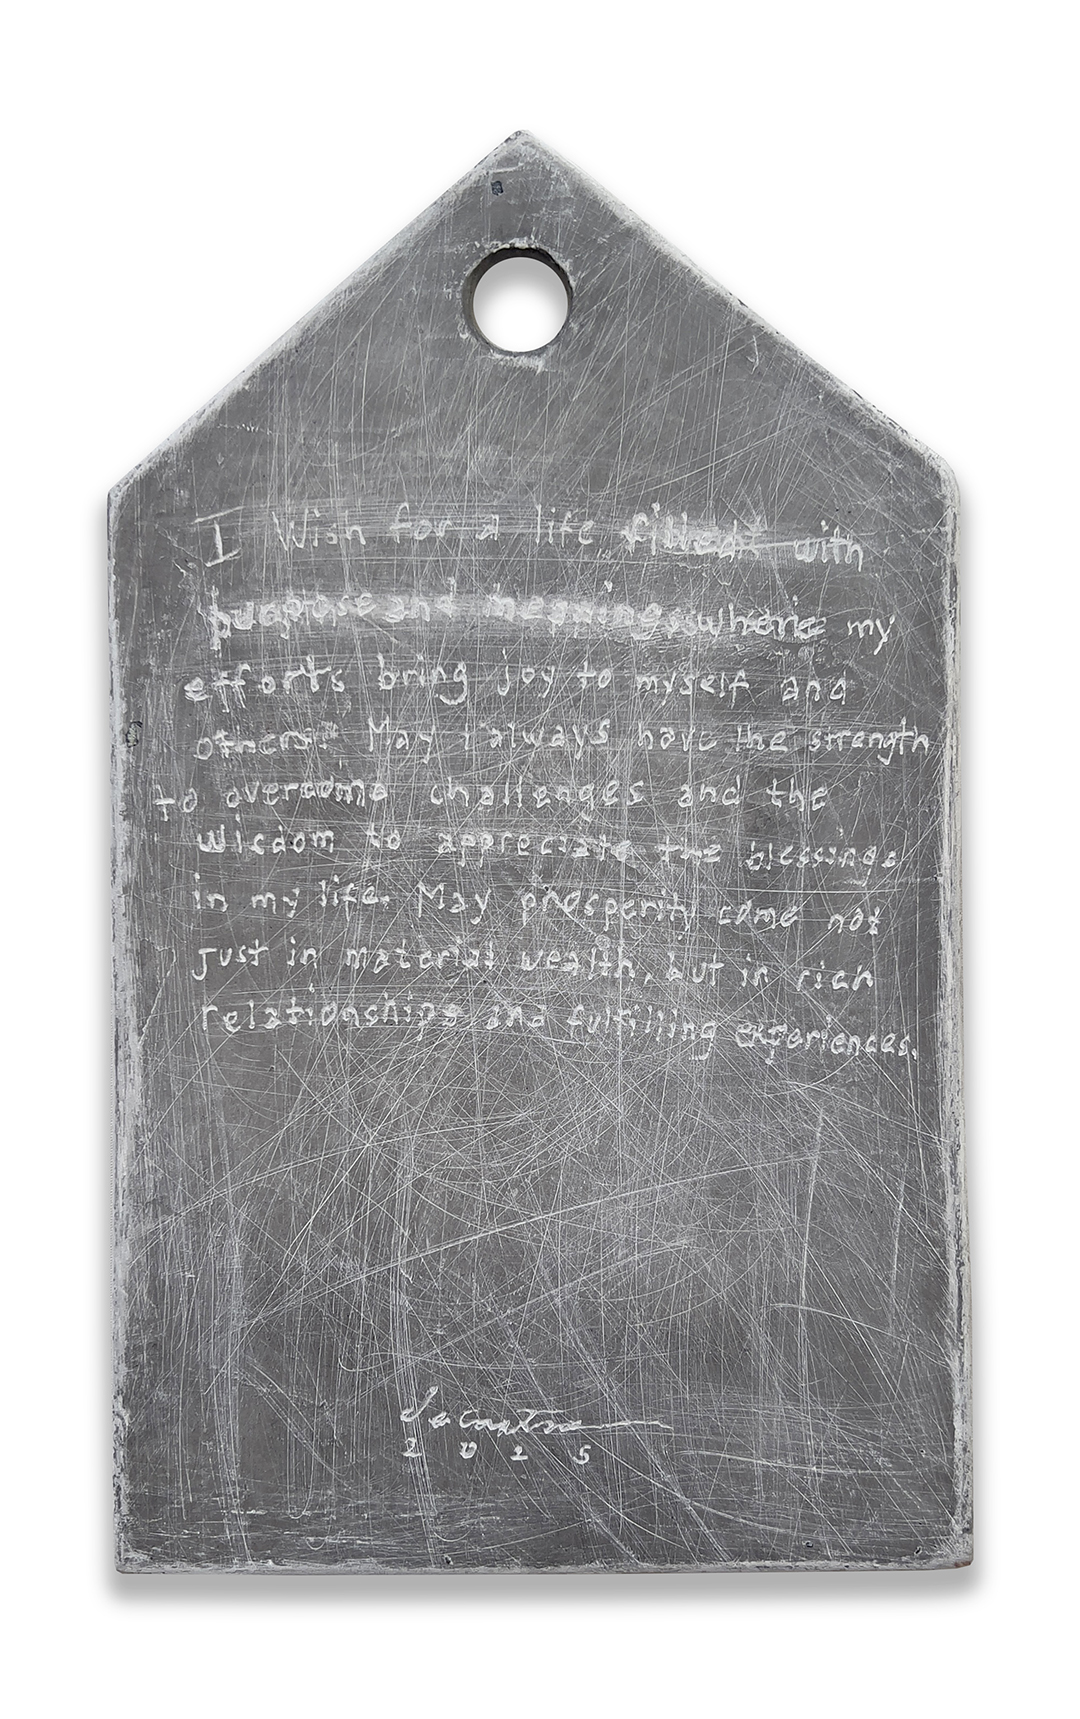 I Wish for a life filled with
purpose and meaning, where my
efforts bring joy to myself and
others. May I always have the strength
to overcome challenges and the
wisdom to appreciate the blessings
in my life. May prosperity come not
just in material wealth, but in rich
relationships and fulfilling experiences.
2025